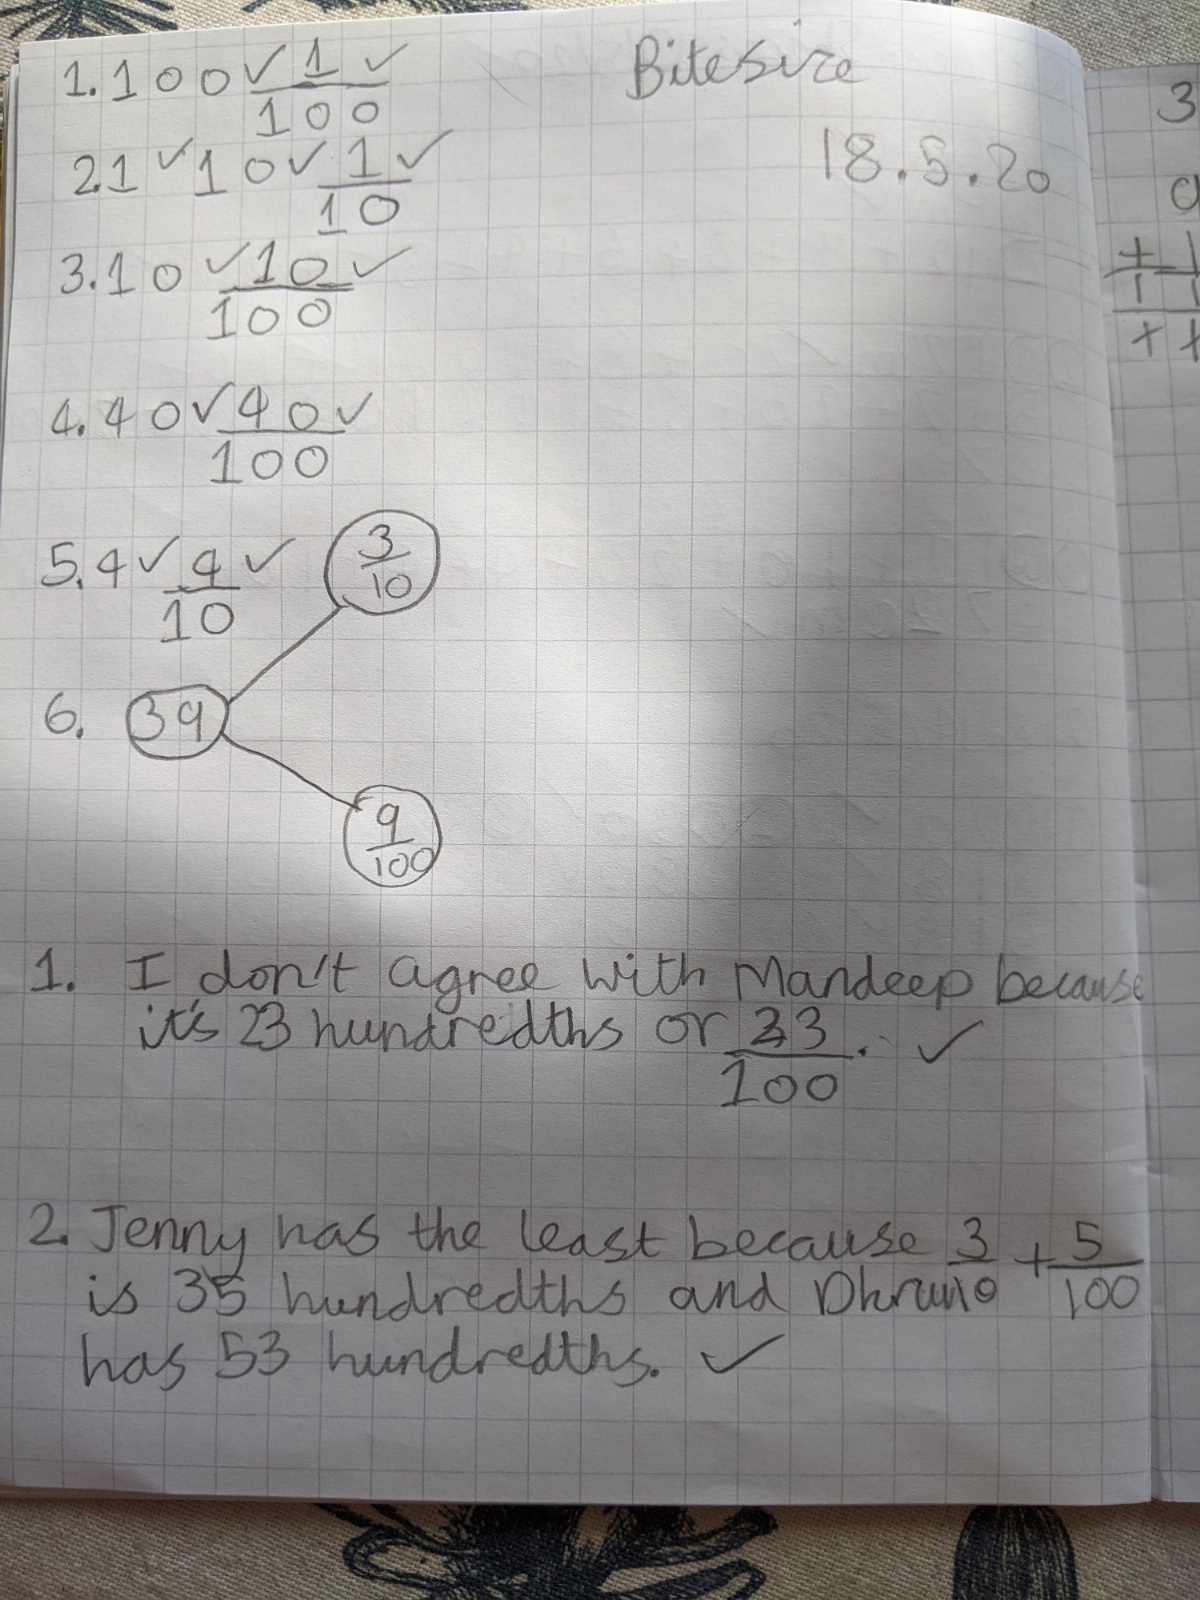 Bitesize
18.5.20
1. 100 ✓ 1/100 ✓
2. 1 ✓ 10 ✓ 1/10 ✓
3. 10 ✓ 10/100 ✓
4. 40 ✓ 40/100 ✓
5. 4 ✓ 4/10 ✓
3/10
6. 39
9/100
1. I don't agree with Mandeep because
it's 23 hundredths or 23/100. ✓
2. Jenny has the least because 3/10 + 5/100
is 35 hundredths and
has 53 hundredths. ✓
3
+ 1
1 1
+ +